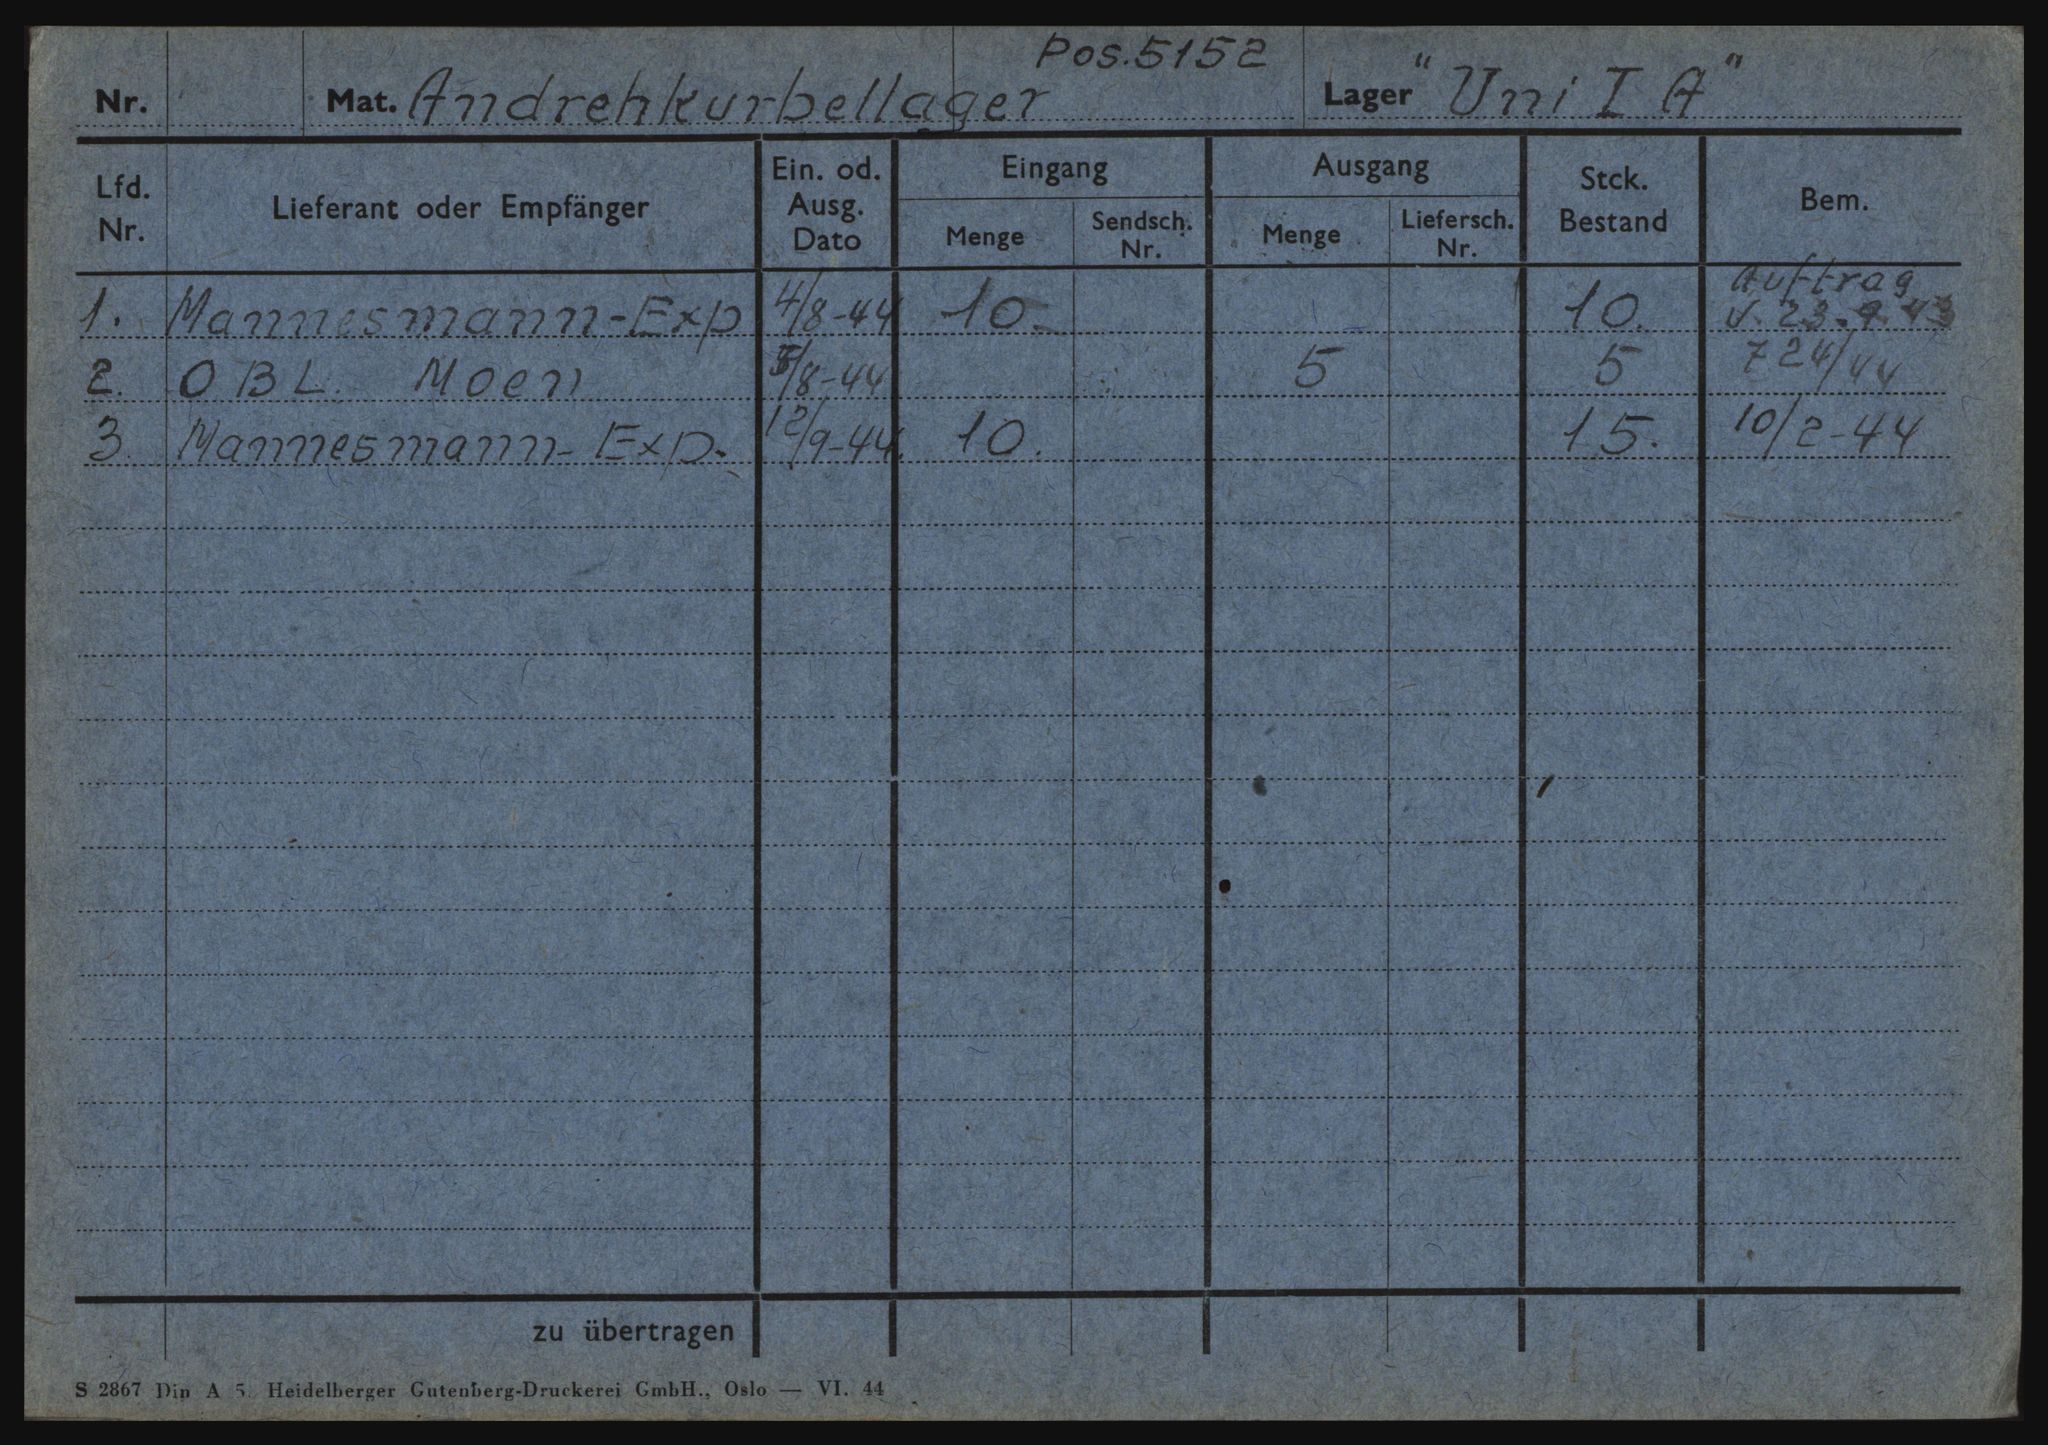 Pos. 5152
Nr. Mat. Andrehkurbellager Lager "Uni I A"
Lfd. Nr. Lieferant oder Empfänger Ein. od. Ausg. Dato Eingang Menge Sendsch. Nr. Ausgang Menge Liefersch. Nr. Stck. Bestand Bem.
Auftrag
1. Mannesmann-Exp 4/8-44 10.- 10. v. 23.9.43
2. OBL. Moen 5/8-44 5 5 724/44
3. Mannesmann-Exp. 12/9-44. 10. 15. 10/2-44
zu übertragen
S 2867 Din A 5. Heidelberger Gutenberg-Druckerei GmbH., Oslo — VI. 44